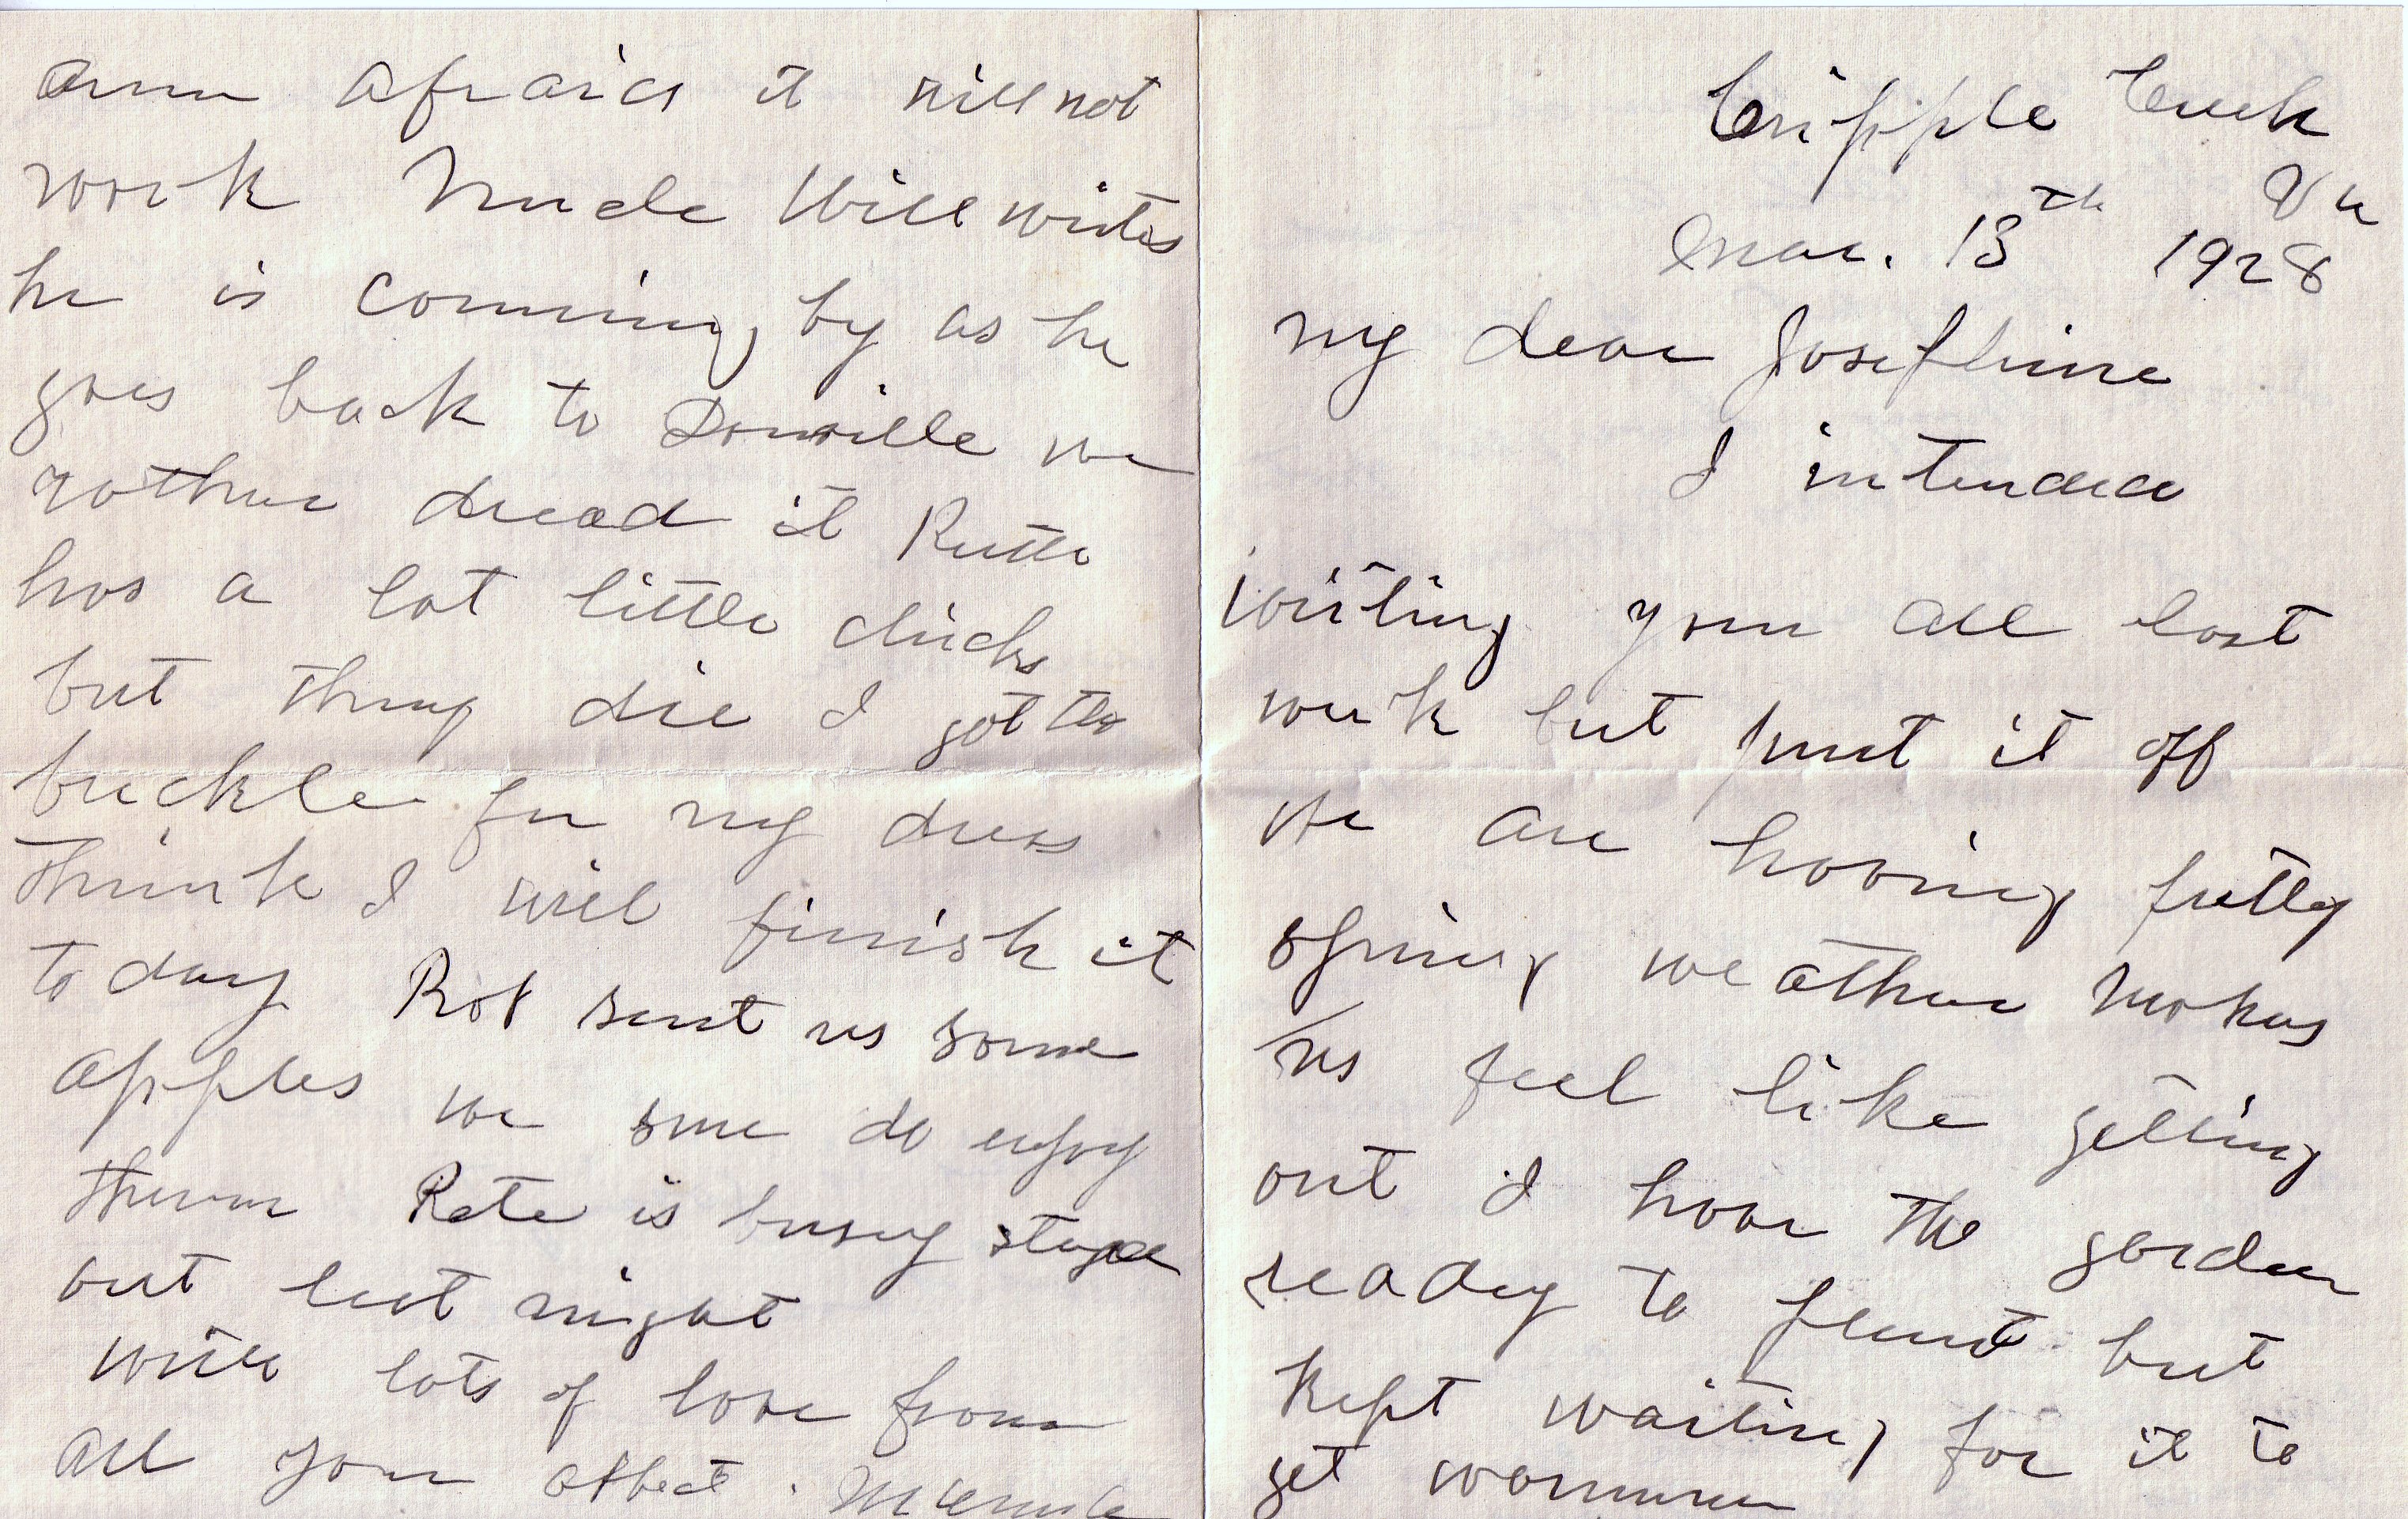 Cripple Creek
Va
Mar. 13th 1928
My dear Josephine
I intended
writing you all last
week but put it off
We are having pretty
spring weather makes
us feel like getting
out I have the garden
ready to plant but
kept waiting for it to
get warmer
am afraid it will not
work Uncle Will writes
he is coming by as he
goes back to Danville we
rather dread it Ruth
has a lot little chicks
but they die I got the
buckle for my dress
think I will finish it
to day Rob sent us some
apples we sure do enjoy
them Kate is busy stayed
out last night
with lots of love from
all your affect.